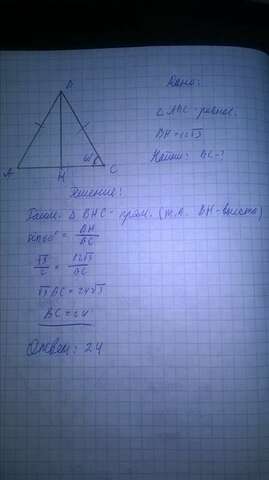 Дано:
B
△ABC - равнос.
BH = 12√3
60°
A
H
C
Найти: BC - ?
Решение:
Рассм. △BHC - прям. (т.к. BH - высота)
sin60° = BH/BC
√3/2 = 12√3/BC
√3 BC = 24√3
BC = 24
Ответ: 24